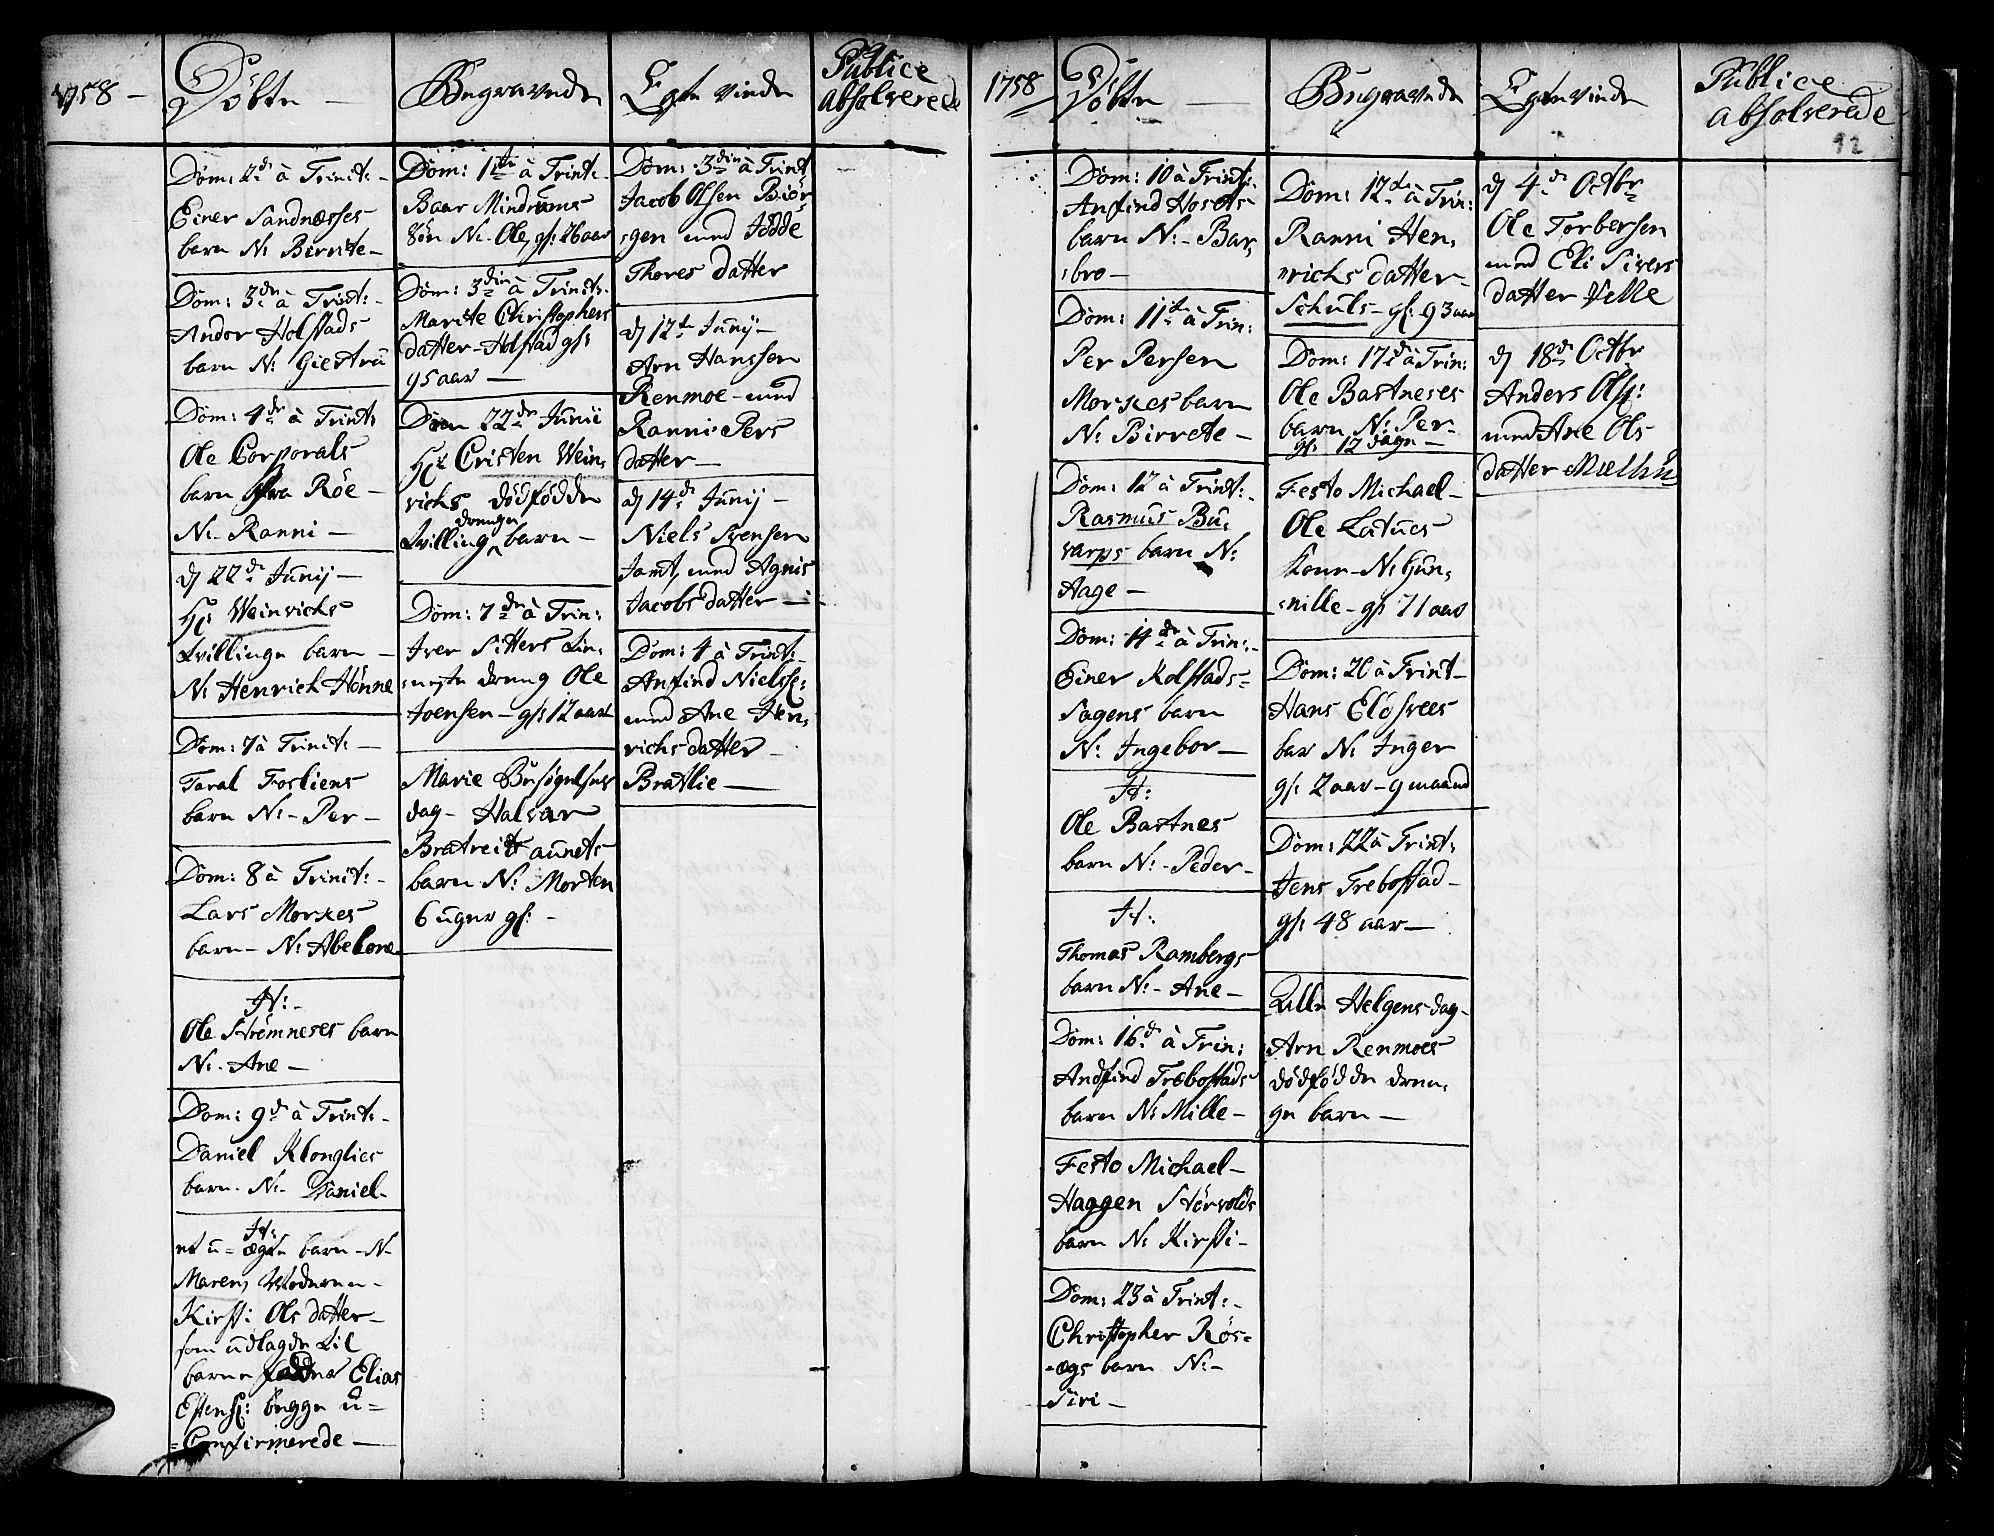 1758 –
Döbte –
Begravede
Egte viede
Publice
absolverede
Dom: 2d. à Trinit: –
Einer Sandnæsses
barn N: Birrite –
Dom: 3de à Trint: –
Andor Holstads
barn N: Giertru
Dom: 4de à Trint:
Ole Corporals
barn fra Röe –
N: Ranni –
d 22de Junij –
Hr Weinrichs
Tvillinge barn –
N: Henrich Hönne
Dom: 7 à Trinit: –
Taral Fosliens
barn N: – Per –
Dom: 8 à Trinit: –
Lars Morkes
barn – N: Abelone
It: –
Ole Strömneses barn
N: Ane –
Dom: 9d à Trint: –
Daniel Klonglies
barn – N: Daniel –
It:
et u = ægte barn – N –
Maren, Moderen –
Kirsti Ols datter –
som udlagde til
barne fader Elias
Estens: begge u =
= Confirmerede –
Dom: 1te à Trint: –
Baar Mindrums
Sön N: Ole, gl: 26 aar
Dom: 3die à Trinit: –
Marite Christophers
datter – Holstad gl:
95 aar –
Den 22de Junii
Hr Cristen Wein,
richs dödfödde
Tvilling drenge barn –
Dom: 7de à Trin:
Iver Sitters tie,
neste dreng Ole
Joensen – gl: 12 aar
Marie Besögelses
dag – Halvar
Bratreitaunets
barn N: Morten
6 uger gl: –
Dom: 3die à Trint
Jacob Olsen Biör,
gen med Jödde
Thores datter
d 12te Junij –
Arn Hanssen
Renmoe – med
Ranni Pers
datter –
d 14de Junij –
Niels Svensen
Jamt, med Agnis
Jacobs datter –
Dom: 4 à Trint: –
Anfind Nielss:
med Ane Hen,
richs datter –
Bratlie –
1758
Döbte –
Begravede
Egteviede
Publice
absolverede
92
Dom: 10 à Trinit:
Anfind Hosets
barn N: – Bar,
bro –
Dom: 11te à Trin:
Per Persen
Morkes barn
N: Birrete –
Dom: 12 à Trint: –
Rasmus Bu,
varps barn N:
Aage –
Dom: 14de à Trin: –
Einer Kolstads =
Sagens barn
N: Ingebor –
It:
Ole Bartnes
barn N: – Peder –
It:
Thomas Rambergs
barn N: – Ane –
Dom: 16d à Trin:
Andfind Trebostads
barn N: Mille –
Festo Michael –
Haggen Störvolds
barn N: Kirsti –
Dom: 23 à Trint: –
Christopher Rös =
= øgs barn N: –
Siri –
Dom: 12de à Trin:
Ranni Hen,
richs datter –
Schuls – gl: 93 aar
Dom: 17d à Trin:
Ole Bartneses
barn N: Per –
gl: 12 dage –
Festo Michael –
Ole Latues
Kone – N: Gun,
nille – gl: 71 aar
Dom: 20 à Trint –
Hans Elösvees
bar N: Inger
gl: 2 aar – 9 maaned
Dom: 22 à Trint:
Jens Trebostad –
gl: 48 aar –
Alle Helgens dag –
Arn Renmoes
dödfödde dren,
ge barn –
d 4de Octbr
Ole Torbersen
med Eli Sivers
datter Velle
d 18de Octbr
Anders Ols:
med Ane Ols
datter Mælhu